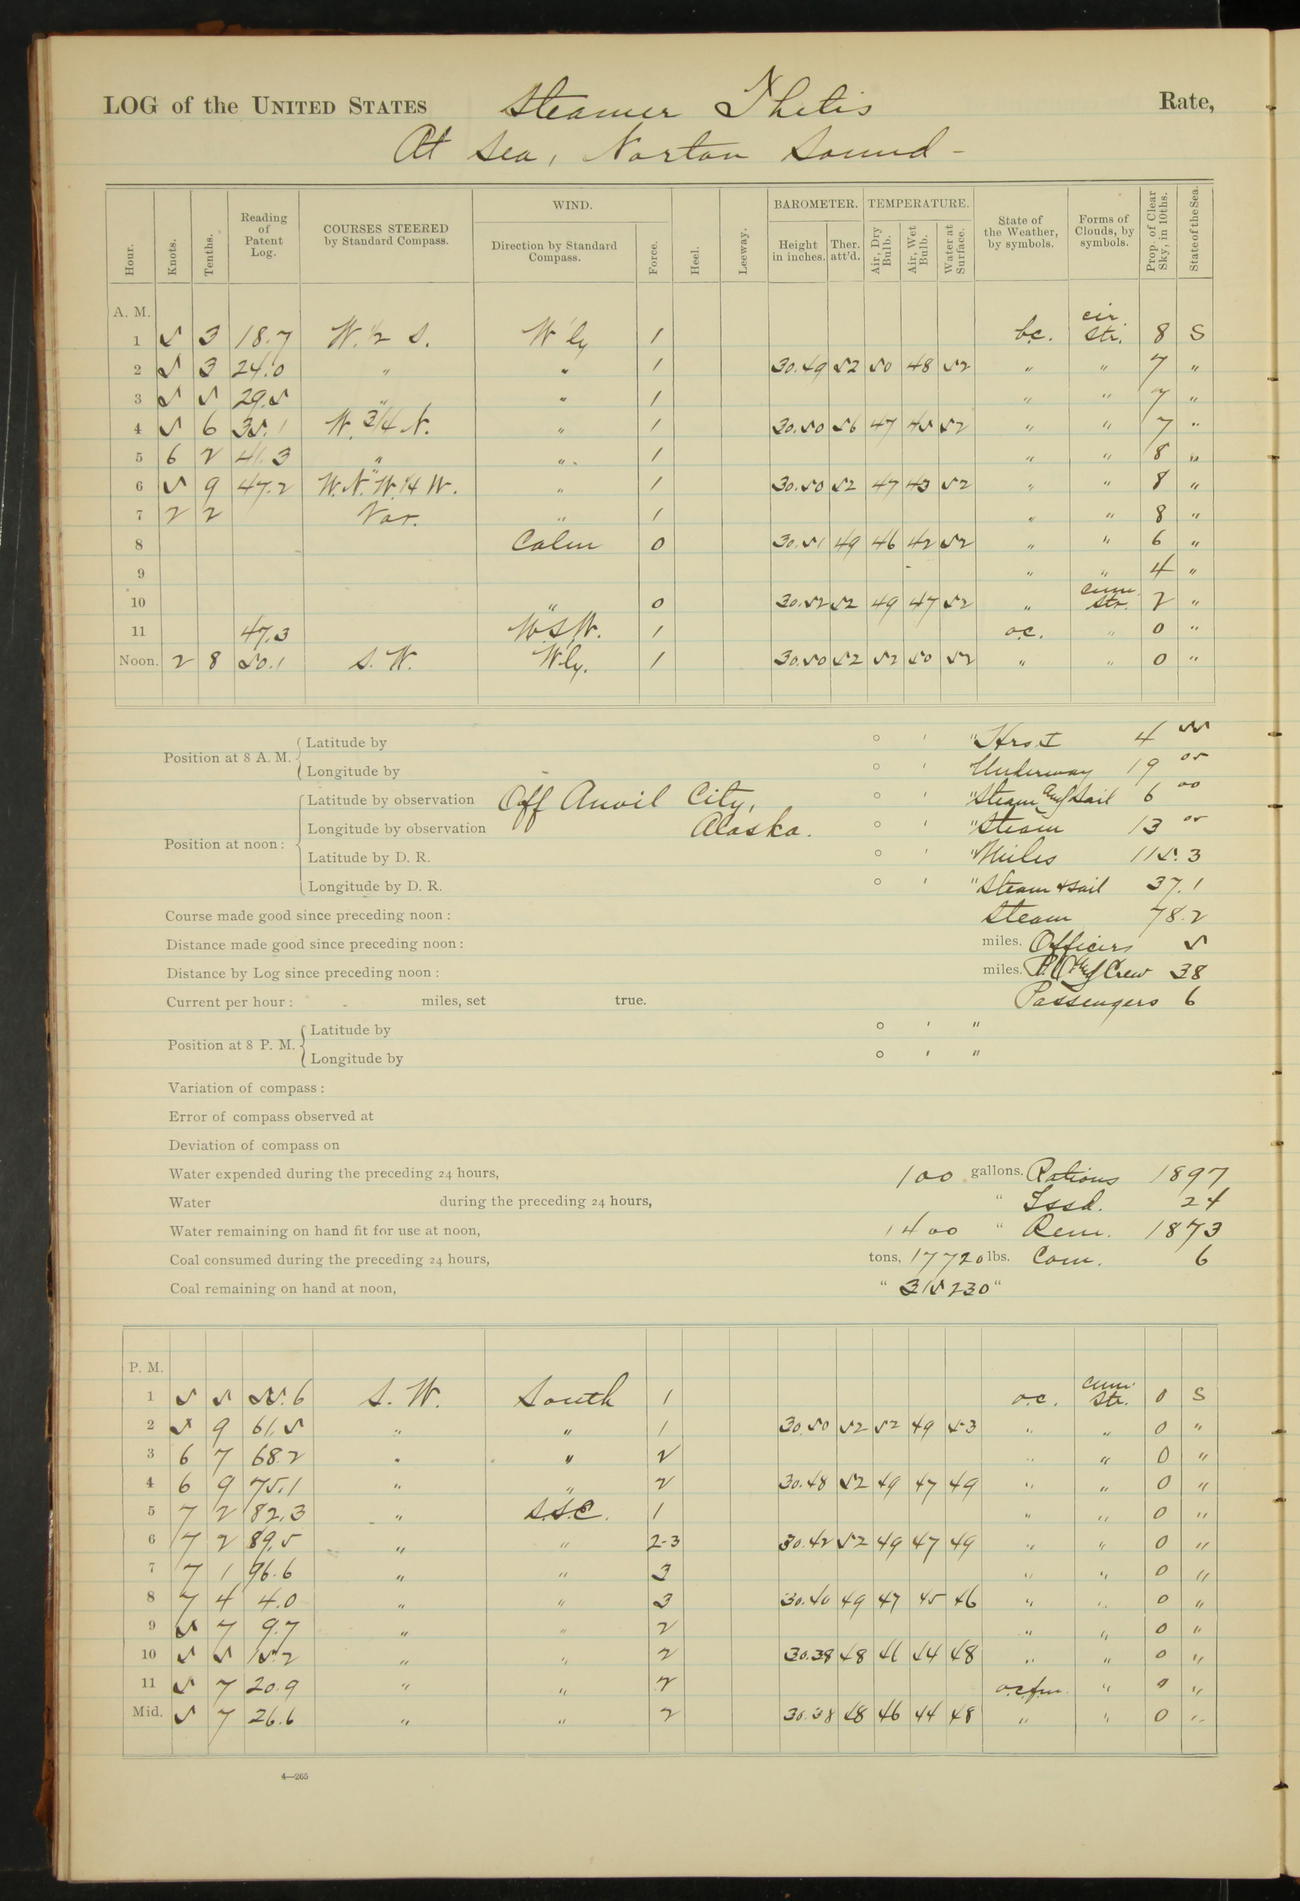 LOG of the UNITED STATES Steamer Thetis Rate,
At Sea, Norton Sound -
Hour. Knots. Tenths. Reading of Patent Log. COURSES STEERED by Standard Compass. WIND. Direction by Standard Compass. Force. Heel. Leeway. BAROMETER. Height in inches. Ther. att'd. TEMPERATURE. Air, Dry Bulb. Air, Wet Bulb. Water at Surface. State of the Weather, by symbols. Forms of Clouds, by symbols. Prop. of Clear Sky, in 10ths. State of the Sea.
A. M.
1 5 3 18.7 W. 1/2 S. W'ly 1 bc. cir str. 8 S
2 5 3 24.0 " " 1 30.49 52 50 48 52 " " 7 "
3 5 5 29.5 " " 1 " " 7 "
4 5 6 35.1 W. 3/4 N. " 1 30.50 56 47 45 52 " " 7 "
5 6 2 41.3 " " 1 " " 8 "
6 5 9 47.2 W.N.W. 1/4 W. " 1 30.50 52 47 43 52 " " 8 "
7 2 2 Var. " 1 " " 8 "
8 Calm 0 30.51 49 46 42 52 " " 6 "
9 " " 4 "
10 " 0 30.52 52 49 47 52 " cum. str. 2 "
11 47.3 W.S.W. 1 o.c. " 0 "
Noon. 2 8 50.1 S. W. W'ly. 1 30.50 52 52 50 52 " " 0 "
Position at 8 A. M. Latitude by ° ' " Hrs. I 4 55
Longitude by ° ' Underway 19 05
Position at noon: Latitude by observation Off Anvil City, ° ' " Steam and Sail 6 00
Longitude by observation Alaska. ° ' " Steam 13 05
Latitude by D. R. ° ' " Miles 115.3
Longitude by D. R. ° ' " Steam & sail 37.1
Course made good since preceding noon: Steam 78.2
Distance made good since preceding noon: miles. Officers 5
Distance by Log since preceding noon: miles. Crew 38
Current per hour: miles, set true. Passengers 6
Position at 8 P. M. Latitude by ° ' "
Longitude by ° ' "
Variation of compass:
Error of compass observed at
Deviation of compass on
Water expended during the preceding 24 hours, 100 gallons. Rations 1897
Water during the preceding 24 hours, " Issd. 24
Water remaining on hand fit for use at noon, 1400 " Rem. 1873
Coal consumed during the preceding 24 hours, tons, 17720 lbs. Com. 6
Coal remaining on hand at noon, " 315230 "
P. M.
1 5 5 55.6 S. W. South 1 o.c. cum. str. 0 S
2 5 9 61.5 " " 1 30.50 52 52 49 53 " " 0 "
3 6 7 68.2 " " 2 " " 0 "
4 6 9 75.1 " " 2 30.48 52 49 47 49 " " 0 "
5 7 2 82.3 " S.S.E. 1 " " 0 "
6 7 2 89.5 " " 2-3 30.42 52 49 47 49 " " 0 "
7 7 1 96.6 " " 3 " " 0 "
8 7 4 4.0 " " 3 30.40 49 47 45 46 " " 0 "
9 5 7 9.7 " " 2 " " 0 "
10 5 5 15.2 " " 2 30.38 48 46 44 48 " " 0 "
11 5 7 20.9 " " 2 o.c.f.m. " 0 "
Mid. 5 7 26.6 " " 2 30.38 48 46 44 48 " " 0 "
4—265